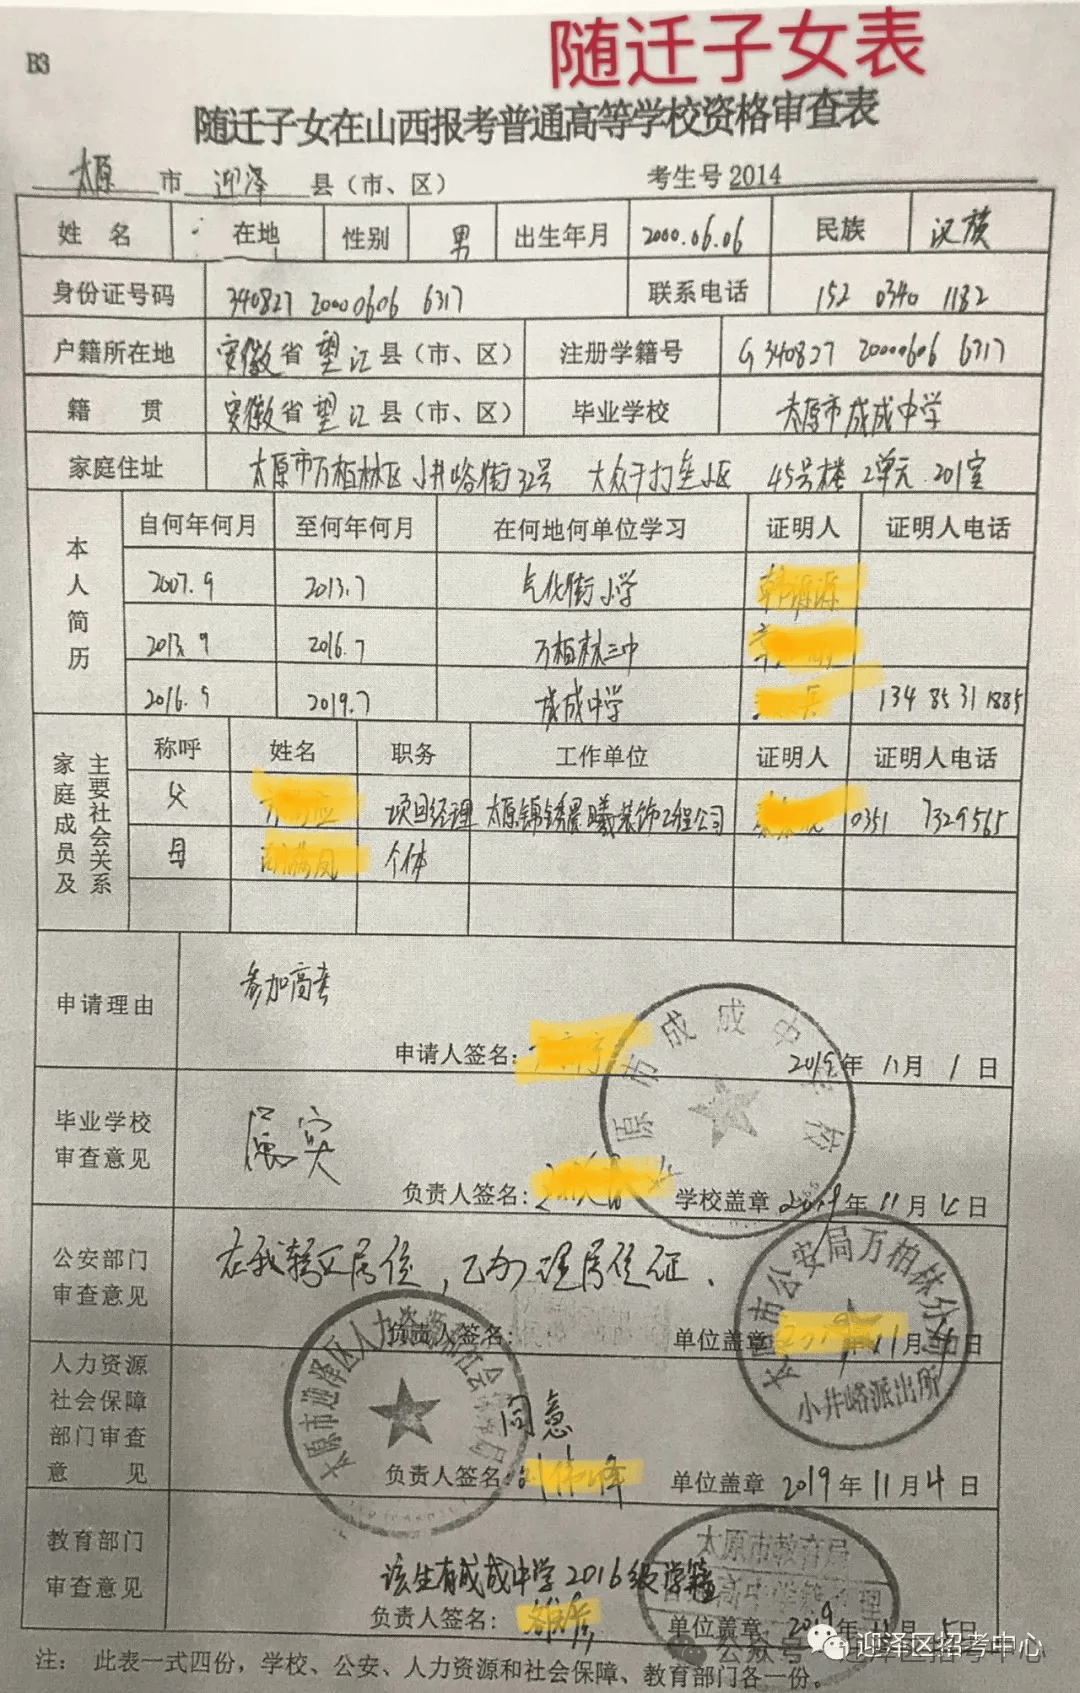 随迁子女表
B3
随迁子女在山西报考普通高等学校资格审查表
太原 市 迎泽 县（市、区） 考生号 2014
姓 名 在地 性别 男 出生年月 2000.06.06 民族 汉族
身份证号码 340827 20000606 6317 联系电话 152 0340 1182
户籍所在地 安徽省 望江 县（市、区） 注册学籍号 G 340827 20000606 6317
籍 贯 安徽省 望江 县（市、区） 毕业学校 太原市成成中学
家庭住址 太原市万柏林区小井峪街32号 大众干打垒小区 45号楼 2单元 201室
本人简历 自何年何月 至何年何月 在何地何单位学习 证明人 证明人电话
2007.9 2013.7 气化街小学
2013.9 2016.7 万柏林三中
2016.9 2019.7 成成中学 134 8531 1885
家庭成员及主要社会关系 称呼 姓名 职务 工作单位 证明人 证明人电话
父 项目经理 太原锦绣晨曦装饰工程公司 0351 7329565
母 个体
申请理由 参加高考
申请人签名： 2019年 11月 1日
毕业学校审查意见 属实
负责人签名： 学校盖章 2019年 11月 4日
太原市成成中学校
公安部门审查意见 在我辖区居住，已办理居住证.
负责人签名： 单位盖章 2019年 11月 4日
太原市公安局万柏林分局
小井峪派出所
人力资源社会保障部门审查意见 同意
负责人签名： 单位盖章 2019年 11月 4日
太原市迎泽区人力资源和社会保障局
教育部门审查意见 该生有成成中学2016级学籍
负责人签名： 单位盖章 2019年 11月 5日
太原市教育局
普通高中学籍管理
注： 此表一式四份，学校、公安、人力资源和社会保障、教育部门各一份。
公众号
迎泽区招考中心